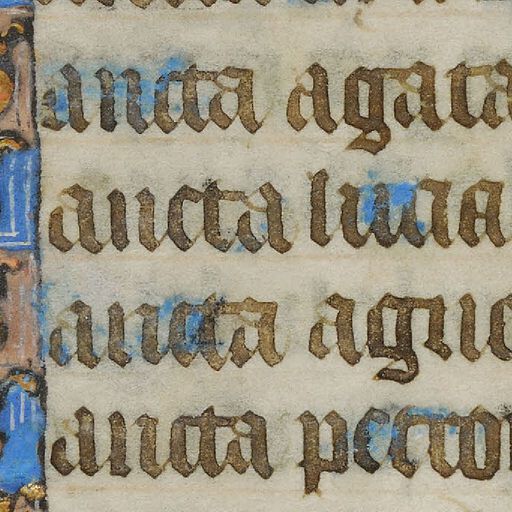 ancta agata
ancta lucia
ancta agne
ancta petron